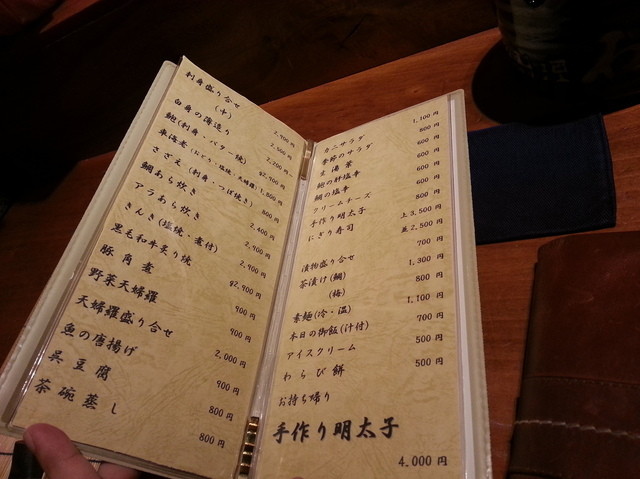 刺身盛り合せ
(中) 2,900円
白身の薄造り 2,500円
鮑(刺身・バター焼) 2,200円~
車海老(おどり・塩焼・天婦羅) 時2,900円
さざえ(刺身・つぼ焼き) 1,800円
鯛あら炊き 800円
アラあら炊き 2,400円
きんき(塩焼・煮付) 2,900円
黒毛和牛炙り焼 2,900円
豚角煮 時2,900円
野菜天婦羅 900円
天婦羅盛り合せ 900円
魚の唐揚げ 2,000円
呉豆腐 900円
茶碗蒸し 800円
800円
カニサラダ 1,100円
季節のサラダ 800円
生湯葉 600円
鮑の肝塩辛 600円
鯛の塩辛 600円
クリームチーズ 600円
手作り明太子 800円
にぎり寿司 上3,500円
並2,500円
漬物盛り合せ 700円
茶漬け(鯛) 1,300円
(梅) 800円
素麺(冷・温) 1,100円
本日の御飯(汁付) 700円
アイスクリーム 500円
わらび餅 500円
お持ち帰り
手作り明太子
4,000円